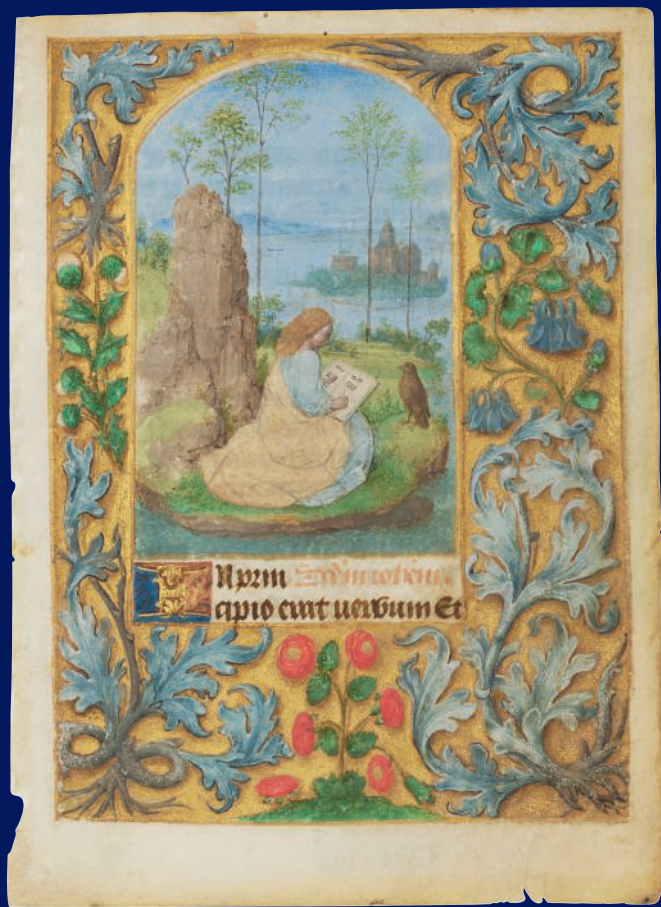 IN prin
cipio erat uerbum Et